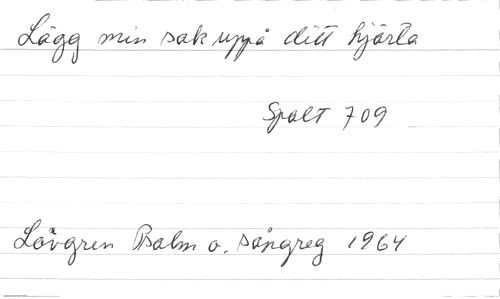 Lägg min sak uppå ditt hjärta
Spalt 709
Lövgren Psalm o. sångreg 1964